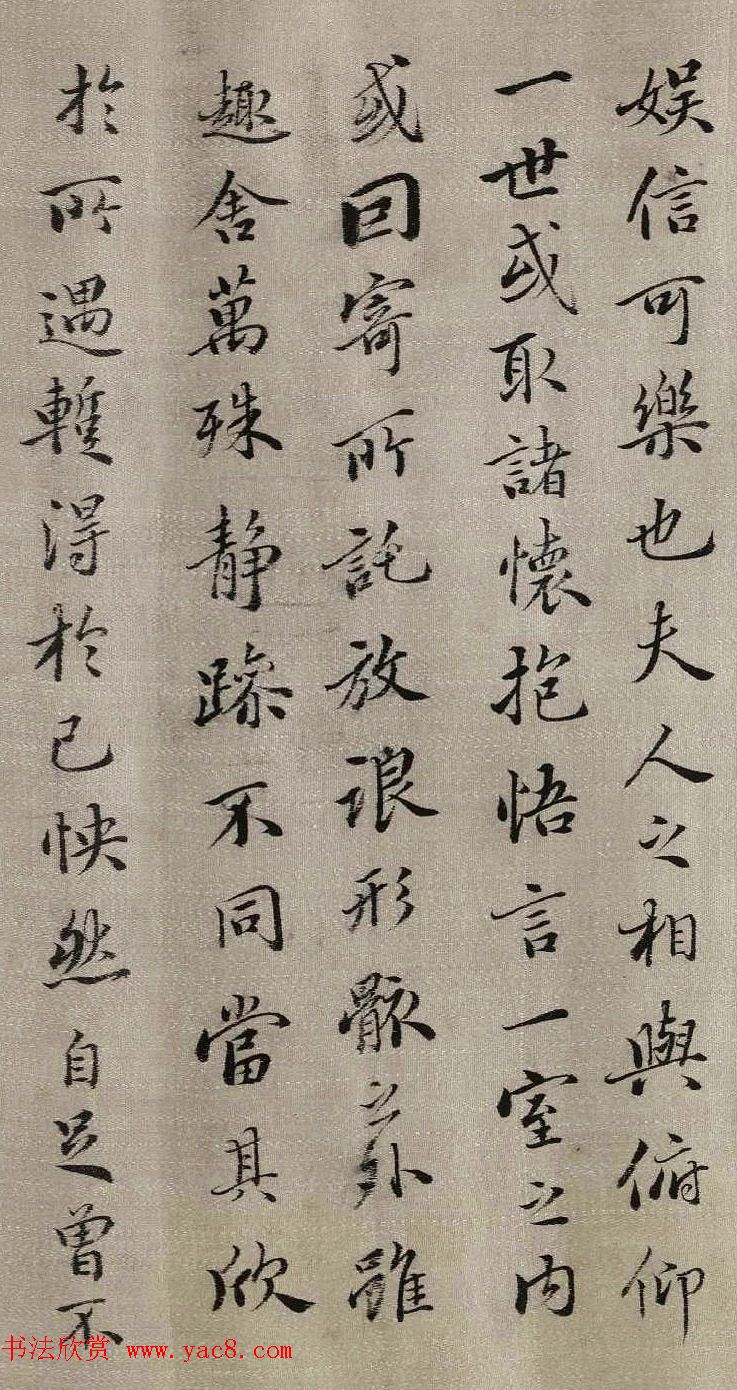 娛信可樂也夫人之相與俯仰
一世或取諸懷抱悟言一室之內
或因寄所託放浪形骸之外雖
趣舍萬殊靜躁不同當其欣
於所遇暫得於己怏然自足曾不
书法欣赏 www.yac8.com